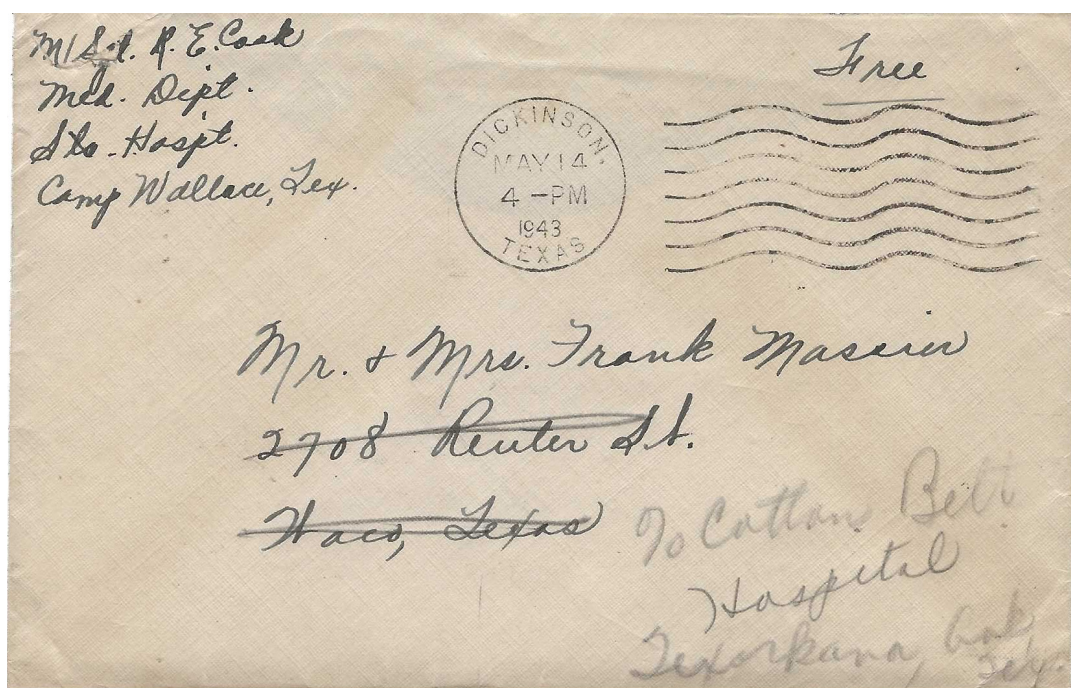 M/Sgt. R. E. Cook
Med. Dept.
Sta. Hospt.
Camp Wallace, Tex.
Free
DICKINSON,
MAY 14
4 -PM
1943
TEXAS
Mr. & Mrs. Frank Massier
2708 Reuter St.
Waco, Texas
% Cotton Belt
Hospital
Texarkana, Ark
Tex